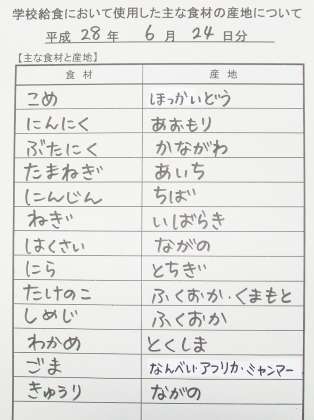 学校給食において使用した主な食材の産地について
平成 28 年 6 月 24 日分
【主な食材と産地】
食 材 産 地
こめ ほっかいどう
にんにく あおもり
ぶたにく かながわ
たまねぎ あいち
にんじん ちば
ねぎ いばらき
はくさい ながの
にら とちぎ
たけのこ ふくおか・くまもと
しめじ ふくおか
わかめ とくしま
ごま なんべい・アフリカ・ミャンマー
きゅうり ながの